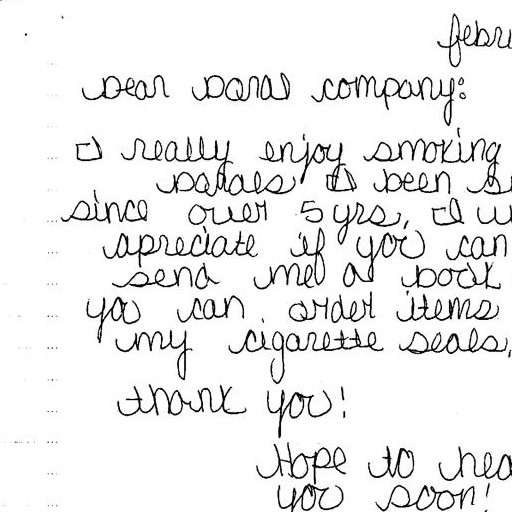 febru
Dear Doral company:
I really enjoy smoking
Dorales I been s
since over 5 yrs, I w
apreciate if you can
send me a book
you can order items
my cigarette seals,
thank you!
Hope to hea
you soon!